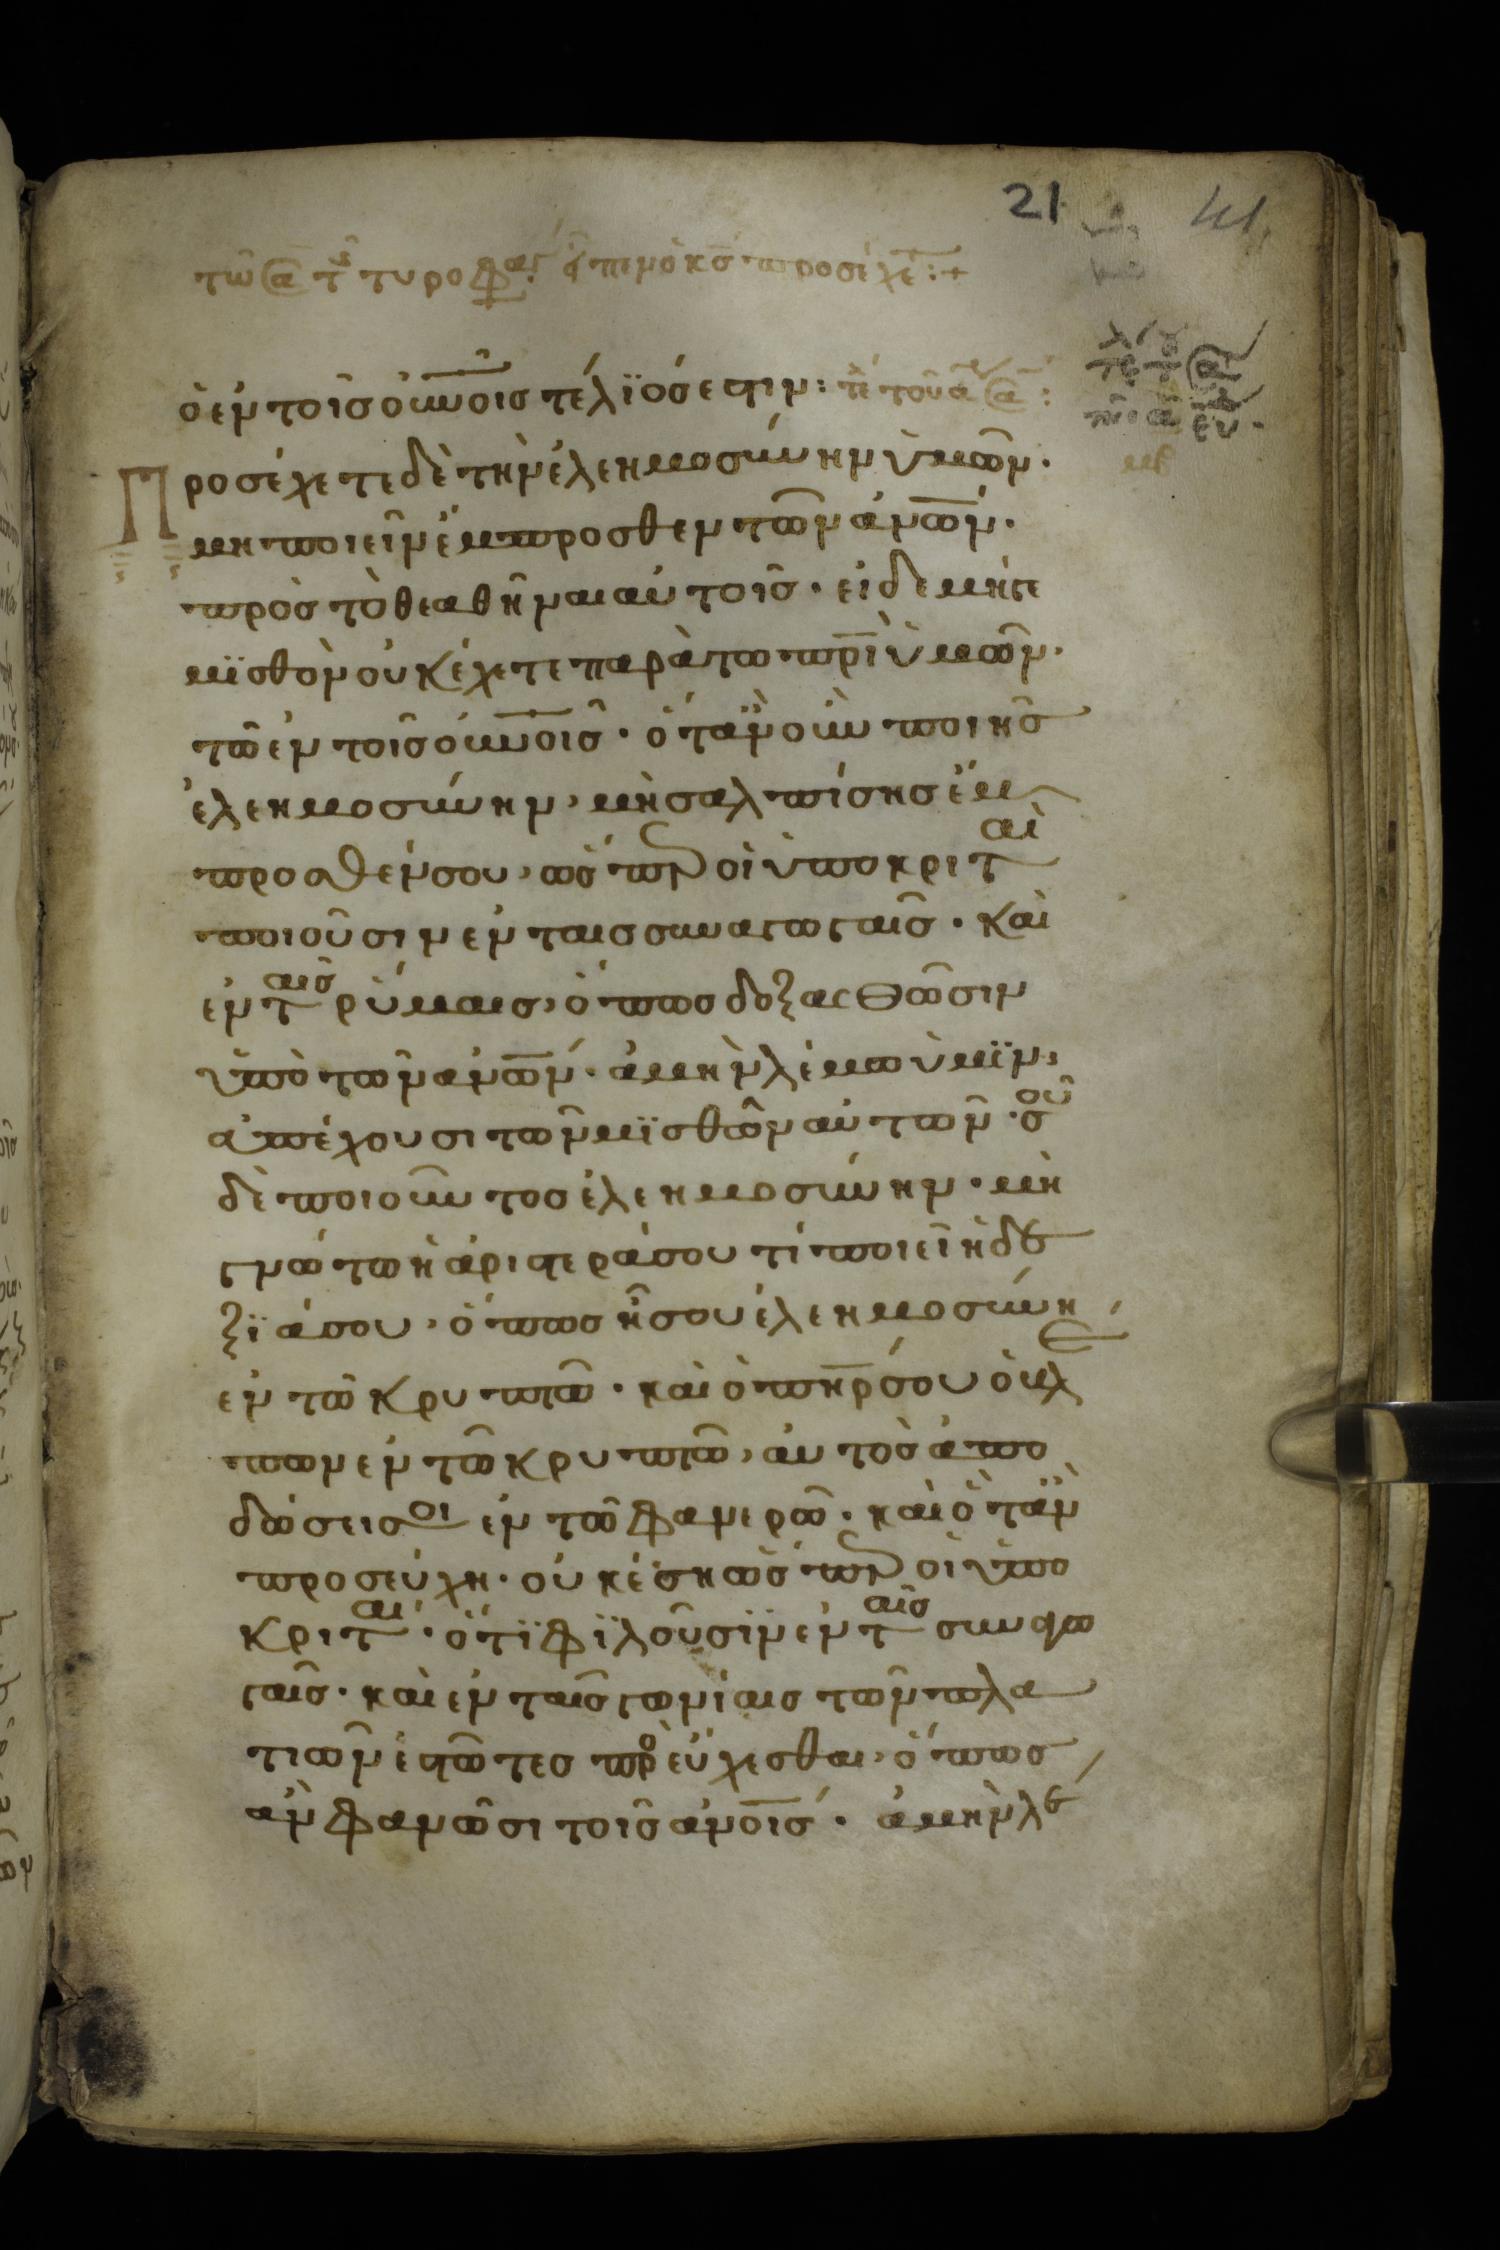 21 41
τῶ σα τ τυροφα ειπεν ο κς προσεχετε :+
ὁ ἐν τοῖς οὐνοις τέλϊός ἐστιν : τε του
Προσέχετε δὲ τὴν ἐλεημοσύνην ὑμῶν·
μη ποιεῖν ἔμπροσθεν τῶν ἀνων·
πρὸς τὸ θεαθῆναι αὐτοῖς· εἰ δε μήγε
μϊσθὸν οὐκ ἔχετε παρὰ τω πρι ὑμῶν·
τῶ ἐν τοῖς οὐνοις· ὅταν οὖν ποιῆς
ἐλεημοσύνην, μὴ σαλπίσης ἔμ
προσθεν σου, ὥσπερ οἱ ὑποκριταὶ
ποιοῦσιν ἐν ταις συναγωγαῖς· καὶ
ἐν ταῖς ῥύμαις, ὅπως δοξασθῶσιν
ὑπὸ τῶν ανων· ἀμὴν λέγω ὑμῖν,
ἀπέχουσι τῶν μϊσθῶν αὐτῶν· σοῦ
δὲ ποιοῦντος ἐλεημοσύνην· μὴ
γνώτω ἡ ἀριστερά σου τί ποιεῖ ἡ δε
ξϊά σου, ὅπως ἦ σου ἐλεημοσύνη,
ἐν τῶ κρυπτῶ· καὶ ὁ πηρ σου ὁ βλέ
πων ἐν τῶ κρυπτῶ, αὐτὸς ἀπο
δώσει σοι ἐν τῶ φανερῶ· καὶ ὅταν
προσεύχη· οὐκ ἔση ὥσπερ οἱ ὑπο
κριταί· ὅτϊ φϊλοῦσϊν ἐν ταῖς συναγω
γαῖς· καὶ ἐν ταῖς γωνίαις τῶν πλα
τιῶν ἐστῶτες προσεύχεσθαι, ὅπως
ἂν φανῶσι τοῖς ἀνοις· ἀμὴν λέ